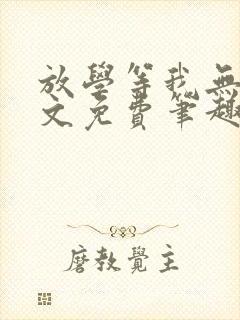 放學等我無
文免費筆趣
磨教覺主